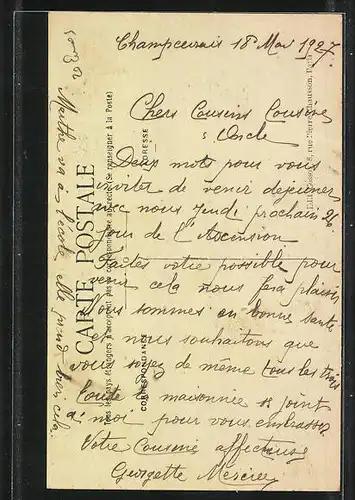 Champcevrais 18 Mai 1927.
Chers Cousins Cousine
Oncle
Deux mots pour vous
inviter de venir déjeuner
avec nous jeudi prochain 26
jour de l'Ascension
Faites votre possible pour
venir cela nous fera plaisir
nous sommes en bonne santé
et nous souhaitons que
vous soyez de même tous les trois
Toute la maisonnée se joint
à moi pour vous embrasser
Votre Cousine affectueuse
Georgette Mercier
Marthe va à l'école elle
cela.
CARTE POSTALE
Tous les pays étrangers n'acceptent pas la correspondance au recto. (Se renseigner à la Poste)
CORRESPONDANCE
ADRESSE